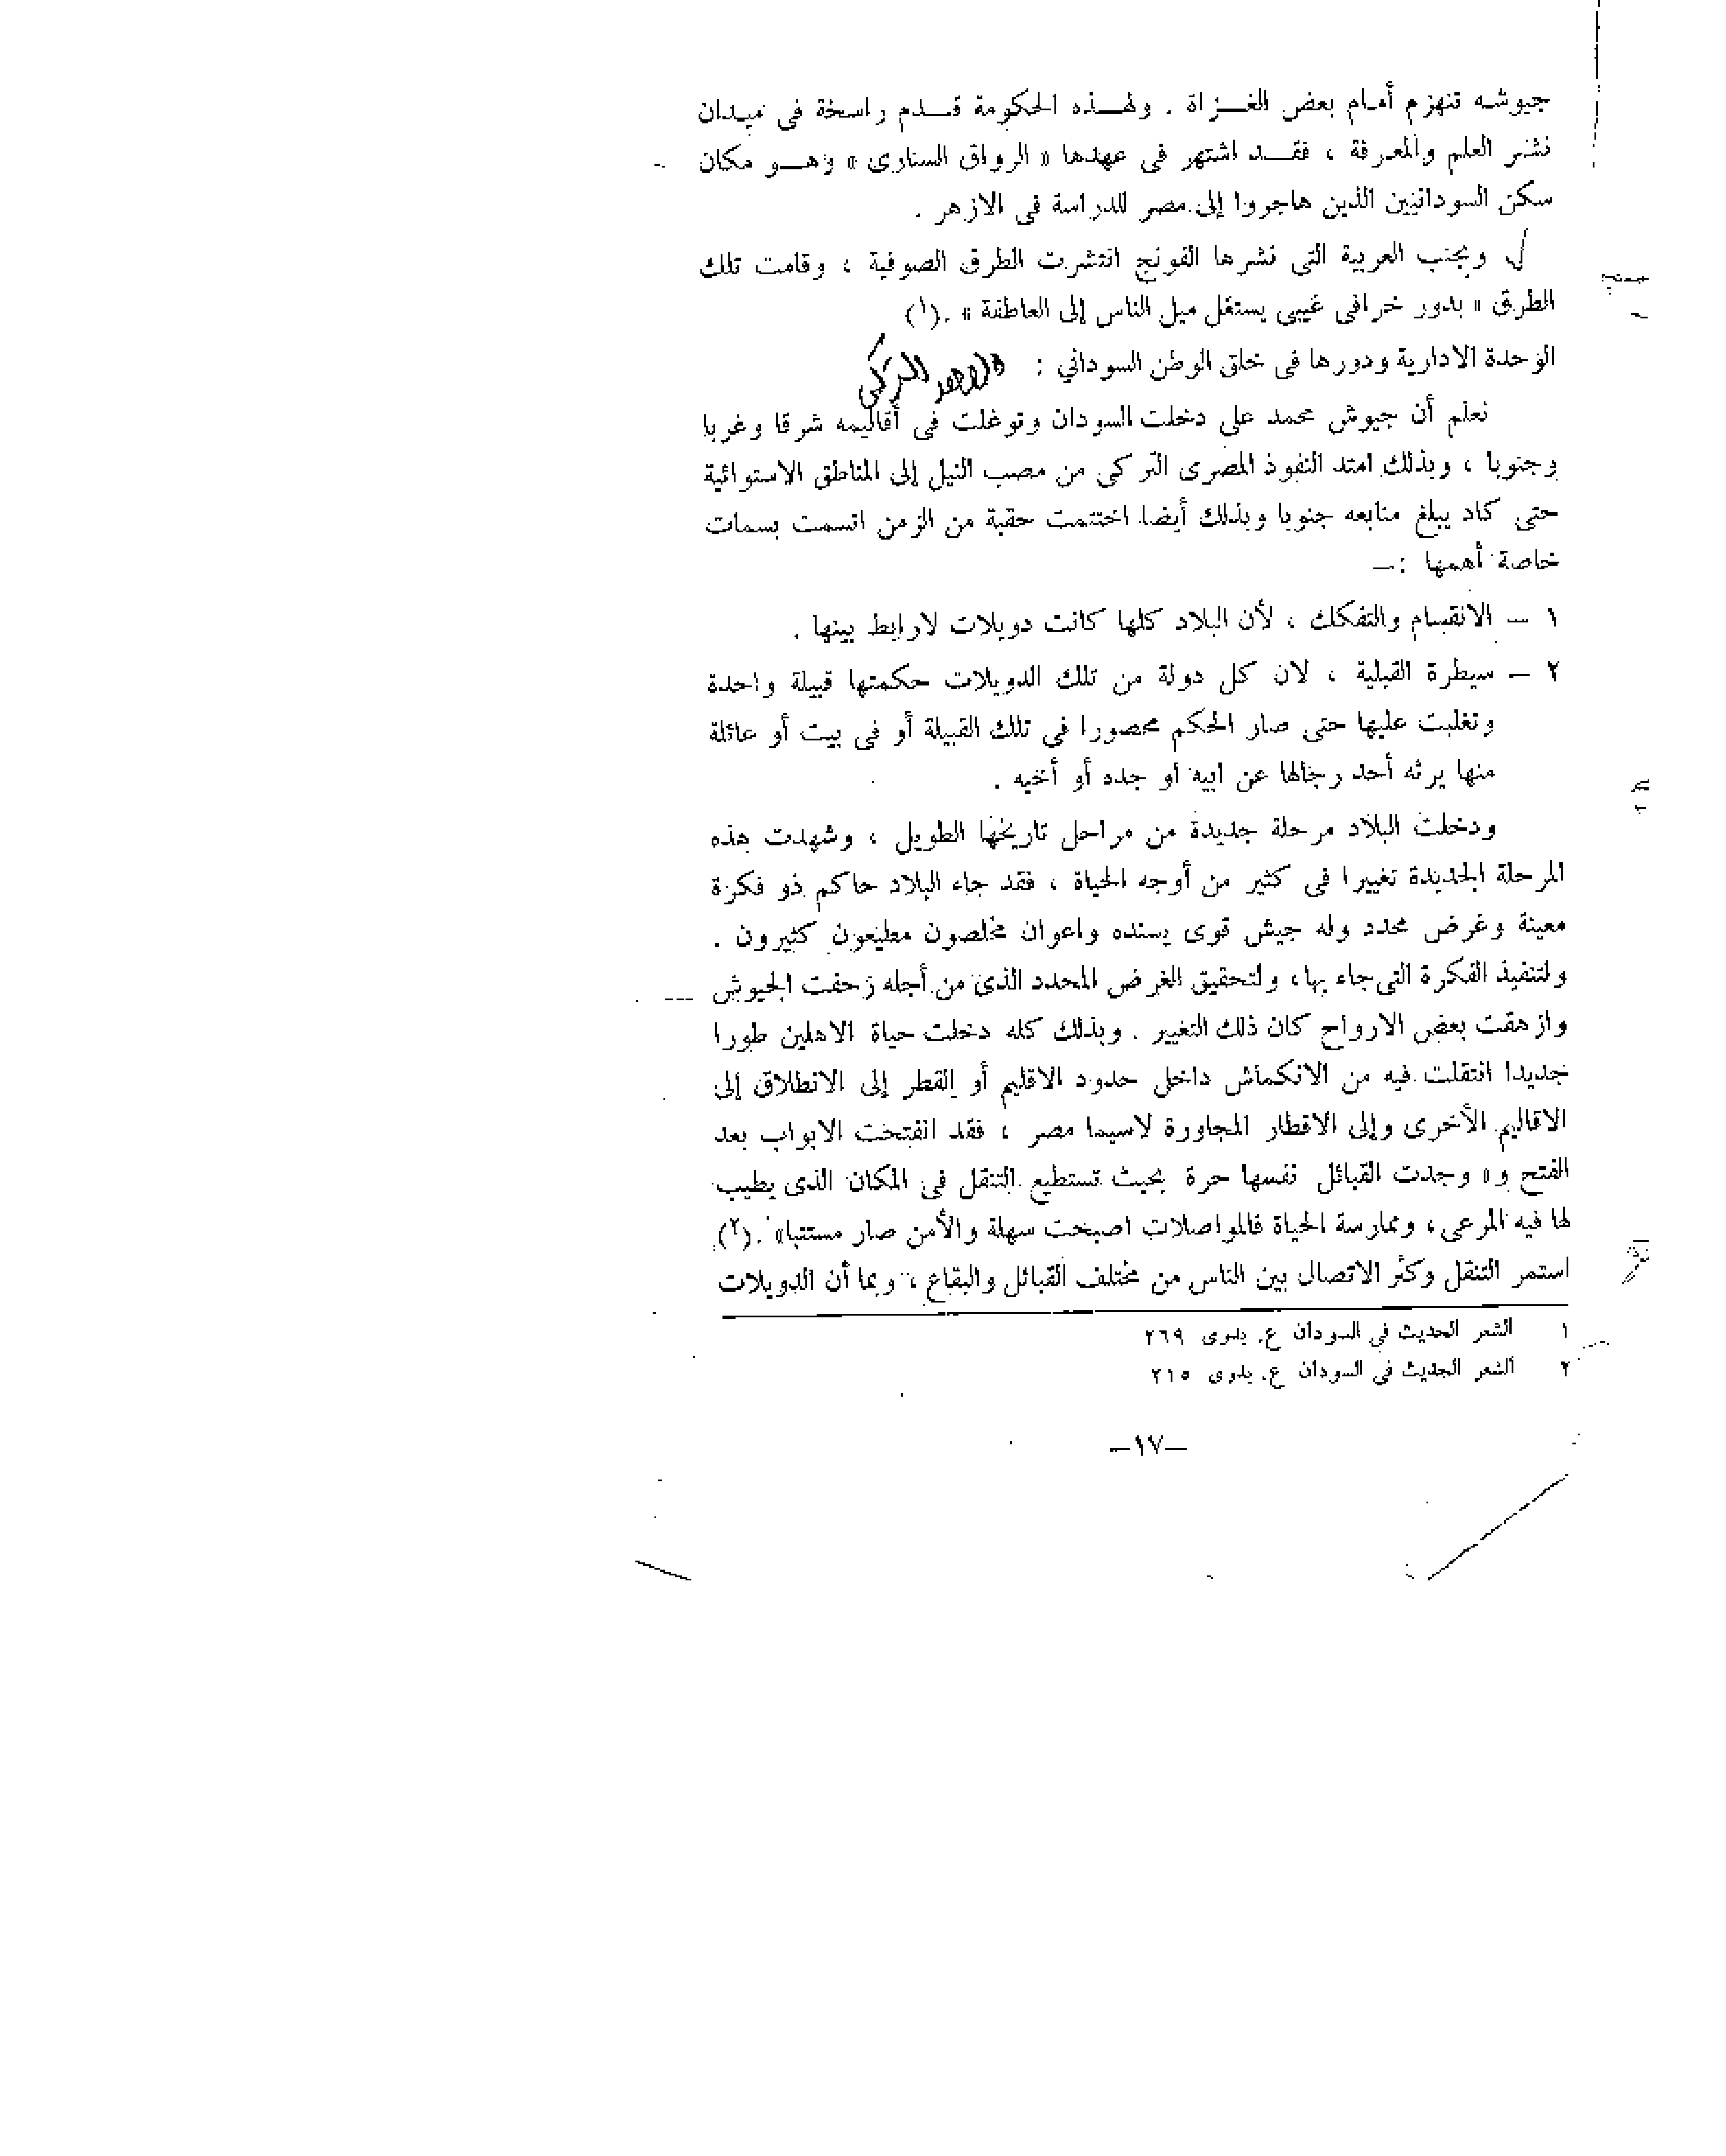 جيوشه تنهزم أمام بعض الغــزاة . ولهــذه الحكومة قــدم راسخة فى ميدان
نشر العلم والمعرفة ، فقــد اشتهر فى عهدها « الرواق السنارى » وهــو مكان
سكن السودانيين الذين هاجروا إلى مصر للدراسة فى الازهر .
وبجنب العربية التى نشرها الفونج انتشرت الطرق الصوفية ، وقامت تلك
الطرق « بدور خرافى غيبى يستغل ميل الناس إلى العاطفة » .(١)
الوحدة الادارية ودورها فى خلق الوطن السوداني : التركى
نعلم أن جيوش محمد على دخلت السودان وتوغلت فى أقاليمه شرقا وغربا
وجنوبا ، وبذلك امتد النفوذ المصرى التركى من مصب النيل إلى المناطق الاستوائية
حتى كاد يبلغ منابعه جنوبا وبذلك أيضا اختتمت حقبة من الزمن اتسمت بسمات
خاصة أهمها :—
١ — الانقسام والتفكك ، لأن البلاد كلها كانت دويلات لارابط بينها .
٢ — سيطرة القبلية ، لان كل دولة من تلك الدويلات حكمتها قبيلة واحدة
وتغلبت عليها حتى صار الحكم محصورا في تلك القبيلة أو فى بيت أو عائلة
منها يرثه أحد رجالها عن ابيه او جده أو أخيه .
ودخلت البلاد مرحلة جديدة من مراحل تاريخها الطويل ، وشهدت هذه
المرحلة الجديدة تغييرا فى كثير من أوجه الحياة ، فقد جاء البلاد حاكم ذو فكرة
معينة وغرض محدد وله جيش قوى يسنده واعوان مخلصون مطيعون كثيرون .
ولتنفيذ الفكرة التى جاء بها، ولتحقيق الغرض المحدد الذى من أجله زحفت الجيوش
وازهقت بعض الارواح كان ذلك التغيير . وبذلك كله دخلت حياة الاهلين طورا
جديدا انتقلت فيه من الانكماش داخل حدود الاقليم أو القطر إلى الانطلاق إلى
الاقاليم الأخرى وإلى الاقطار المجاورة لاسيما مصر ، فقد انفتحت الابواب بعد
الفتح و« وجدت القبائل نفسها حرة بحيث تستطيع التنقل فى المكان الذى يطيب
لها فيه المرعى، وممارسة الحياة فالمواصلات اصبحت سهلة والأمن صار مستتبا» .(٢)
استمر التنقل وكثر الاتصال بين الناس من مختلف القبائل والبقاع ، وبما أن الدويلات
١ الشعر الحديث في السودان ع. بدوى ٢٦٩
٢ الشعر الحديث في السودان ع. بدوى ٢١٥
—١٧—